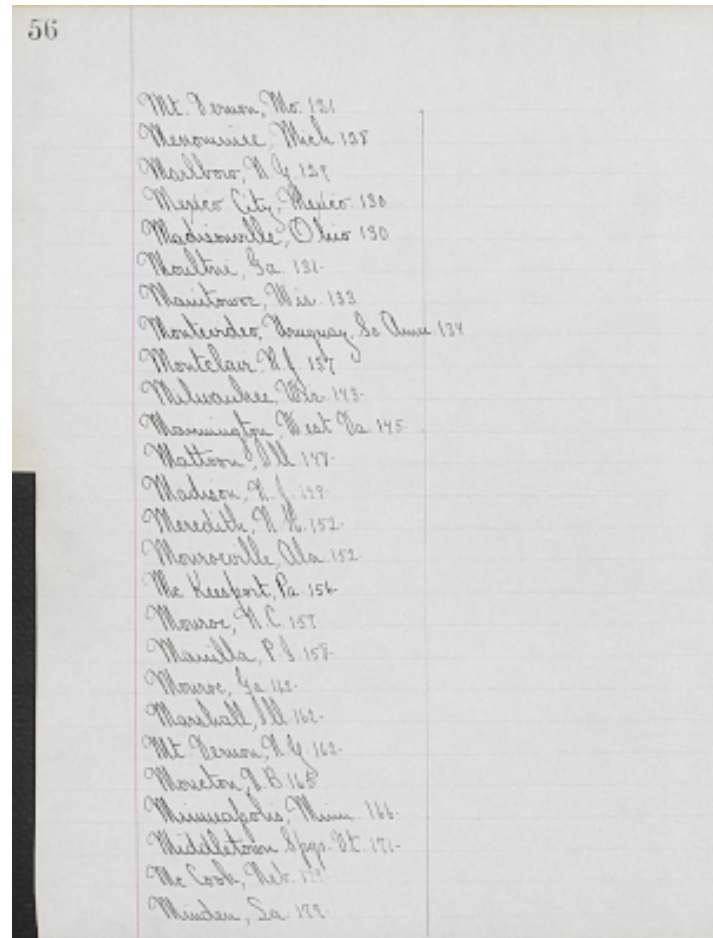 56
Mt. Vernon, Mo. 121
Menominee, Mich. 128
Marlboro, N.Y. 129
Mexico City, Mexico. 130
Madisonville, Ohio 130
Moultrie, Ga. 131.
Manitowoc, Wis. 133
Montevideo, Uruguay, So Amer 134
Montclair, N.J. 137
Milwaukee, Wis. 143.
Mannington, West Va. 145.
Mattoon, Ill. 148.
Madison, N.J.
Meredith, N.H. 152.
Monroeville, Ala. 152
McKeesport, Pa. 156.
Monroe, N.C. 157
Manilla, P.I. 158.
Monroe, Ga.
Marshall, Ill. 162.
Mt. Vernon, N.Y. 162.
Moncton, N.B. 165
Minneapolis, Minn. 166.
Middletown Spgs. Vt. 171.
McCook, Neb.
Minden, La.